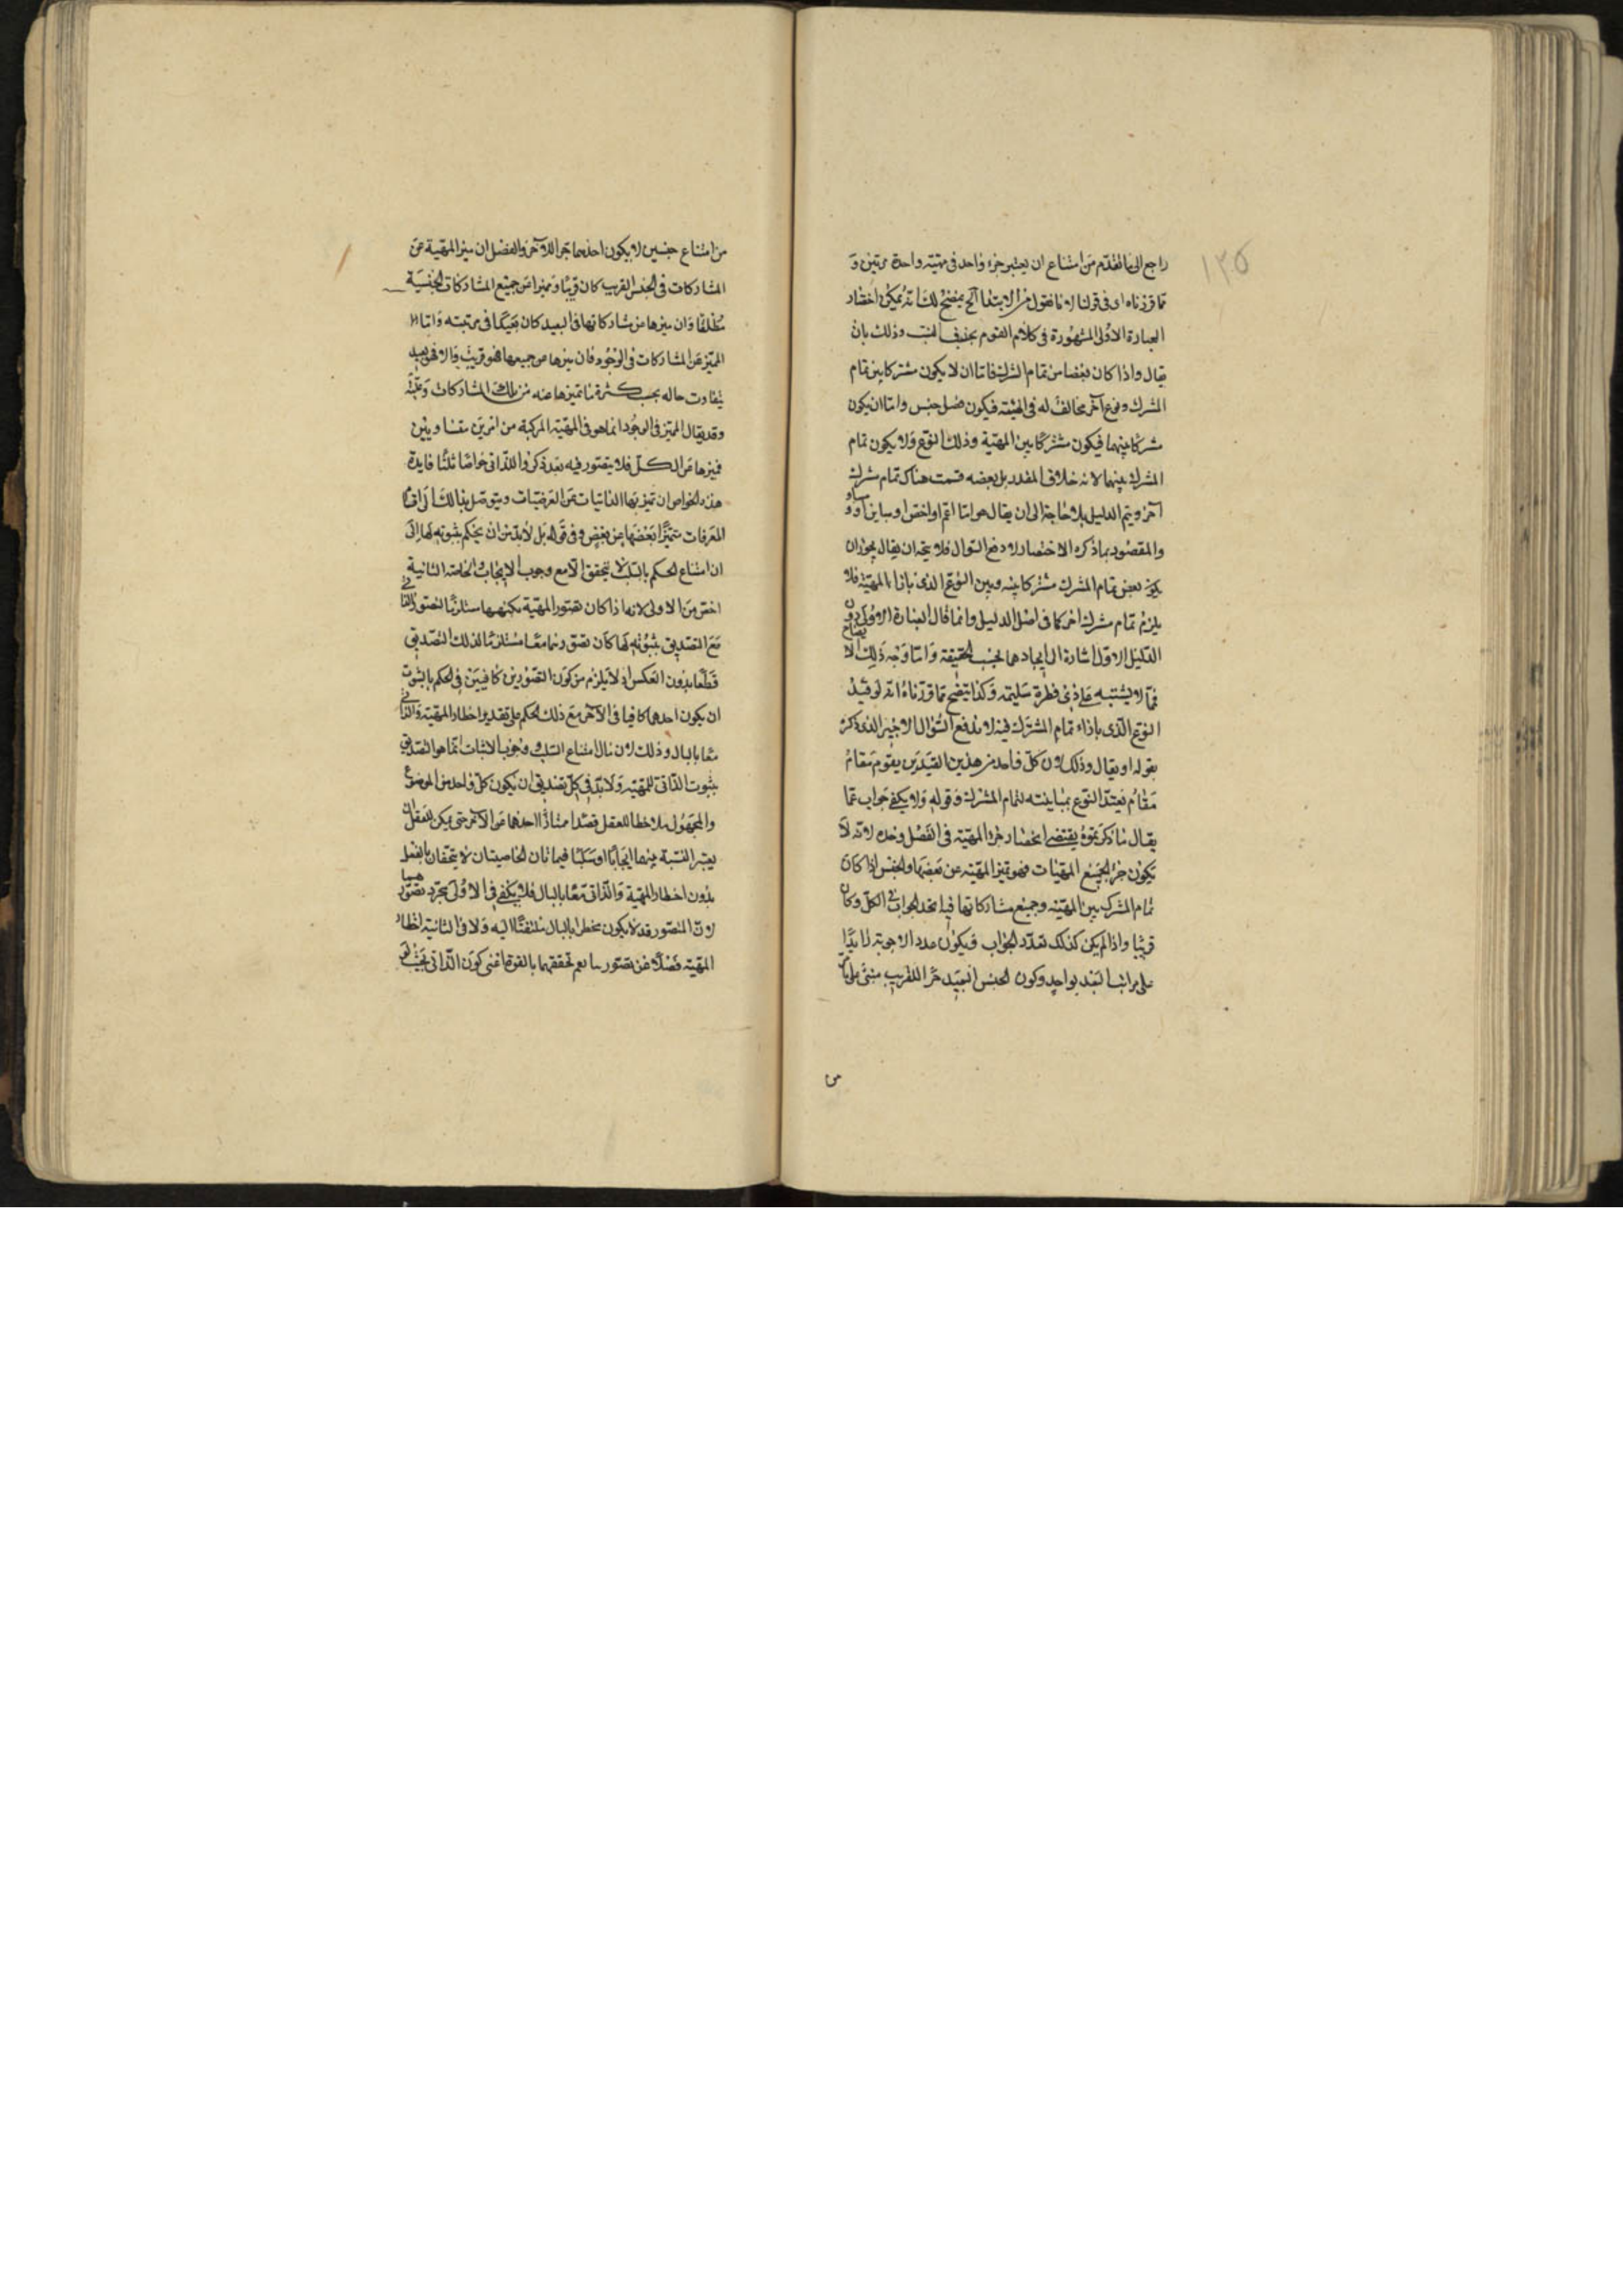 ١٣٥
راجع الى ما تقدم من امتناع ان يعتبر جزء واحد فى مهية واحدة مرتين و
مما قررناه اى فى قولنا لانا نقول من الابتداء الخ يتضح لك انه يمكن اختصار
العبارة الاولى المشهورة فى كلام القوم بحذف النسب وذلك بان
يقال واذا كان بعضا من تمام المشترك فاما ان لا يكون مشتركا بين تمام
المشترك ونوع آخر مخالف له فى الهيئة فيكون فصل جنس واما ان يكون
مشتركا بينهما فيكون مشتركا بين المهية وذلك النوع ولا يكون تمام
المشترك بينهما لانه خلاف المقدر بل بعضه فثمت هناك تمام مشترك
آخر ويتم الدليل بلا حاجة الى ان يقال هو اما اعم او اخص او مباين او مساو
والمقصود بما ذكره الاختصار لا دفع السوال فلا يتجه ان يقال يجوز ان
يكون بعض تمام المشترك مشتركا بينه وبين النوع الذى بازاء المهية فلا
يلزم تمام مشترك آخر كما فى اصل الدليل وانما قال العبارة الاولى دون
الدليل الاول اشارة الى اتحادهما بحسب الحقيقة واما وجه ذلك
فمما لا يشتبه على ذى فطرة سليمة وكذا يتضح مما قررناه انه لو قيد
النوع الذى بازاء تمام المشترك فيه لاندفع السوال الاخير الذى ذكر
بقوله او يقال وذلك لان كل واحد من هذين القيدين يقوم مقام
مقام تقييد النوع بمباينته لتمام المشترك وقوله ولا يكفى جواب عما
يقال ما ذكرتموه يقتضى انحصار جزء المهية فى الفصل وحده لانه لا
يكون جزءا لجميع المهيات فهو تميز المهية عن بعضها والجنس اذا كان
تمام المشترك بين المهية وجميع مشاركاتها فيه اتحد الجواب فى الكل وكان
قريبا واذا لم يكن كذلك تعدد الجواب فيكون عدد الاجوبة زايدا
على مراتب البعد بواحد وكون الجنس البعيد جزءا للقريب مبنى على ما مر
من
من امتناع جنسين لا يكون احدهما جزءا للآخر والفصل ان ميز المهية عن
المشاركات فى الجنس القريب كان قريبا ومميزا عن جميع المشاركات الجنسية
مطلقا وان ميزها عن مشاركاتها فى البعيد كان بعيدا فى مرتبته واما
المميز عن المشاركات فى الوجود فان ميزها عن جميعها فهو قريب والا فهو بعيد
يتفاوت حاله بحسب كثرة ما تميزها عنه من تلك المشاركات وقلته
وقد يقال المميز فى الوجود انما هو فى المهية المركبة من امرين متساويين
فميزها عن الكل فلا يتصور فيه بعد ذكروا للذاتى خواصا ثلثا فايدة
هذه الخواص ان تميز بها الذاتيات عن العرضيات ويتوصل بذلك الى اقسام
المعرفات متميزا بعضها عن بعض وفى قوله بل لابد من ان يحكم بثبوته لها الى
ان امتناع الحكم بالسلب لا يتحقق الا مع وجوب الايجاب والخاصة الثانية
اخص من الاولى لانه اذا كان تصور المهية بكنهها مستلزما لتصور الذاتى
مع التصديق بثبوته لها كان تصورهما معا مستلزما لذلك التصديق
قطعا بدون العكس اذ لا يلزم من كون التصورين كافيين فى الحكم بالثبوت
ان يكون احدهما كافيا فى الآخر مع ذلك الحكم على تقدير اخطار المهية والذاتى
معا بالبال وذلك لان مآل امتناع السلب ووجوب الاثبات انما هو التصديق
بثبوت الذاتى للمهية ولابد فى كل تصديق ان يكون كل واحد من الموضوع
والمحمول ملاحظا للعقل قصدا ممتازا احدهما عن الآخر حتى يمكن للعقل ان
يعتبر النسبة بينهما ايجابا او سلبا فهاتان الخاصيتان لا يتحققان بالفعل
بدون اخطار المهية والذاتى معا بالبال فلا يكفى فى الاولى مجرد تصورهما
لان المتصور قد لا يكون مخطرا بالبال ملتفتا اليه ولا فى الثانية اخطار
المهية فضلا عن تصورها نعم تحققهما بالقوة اعنى كون الذاتى بحيث لو